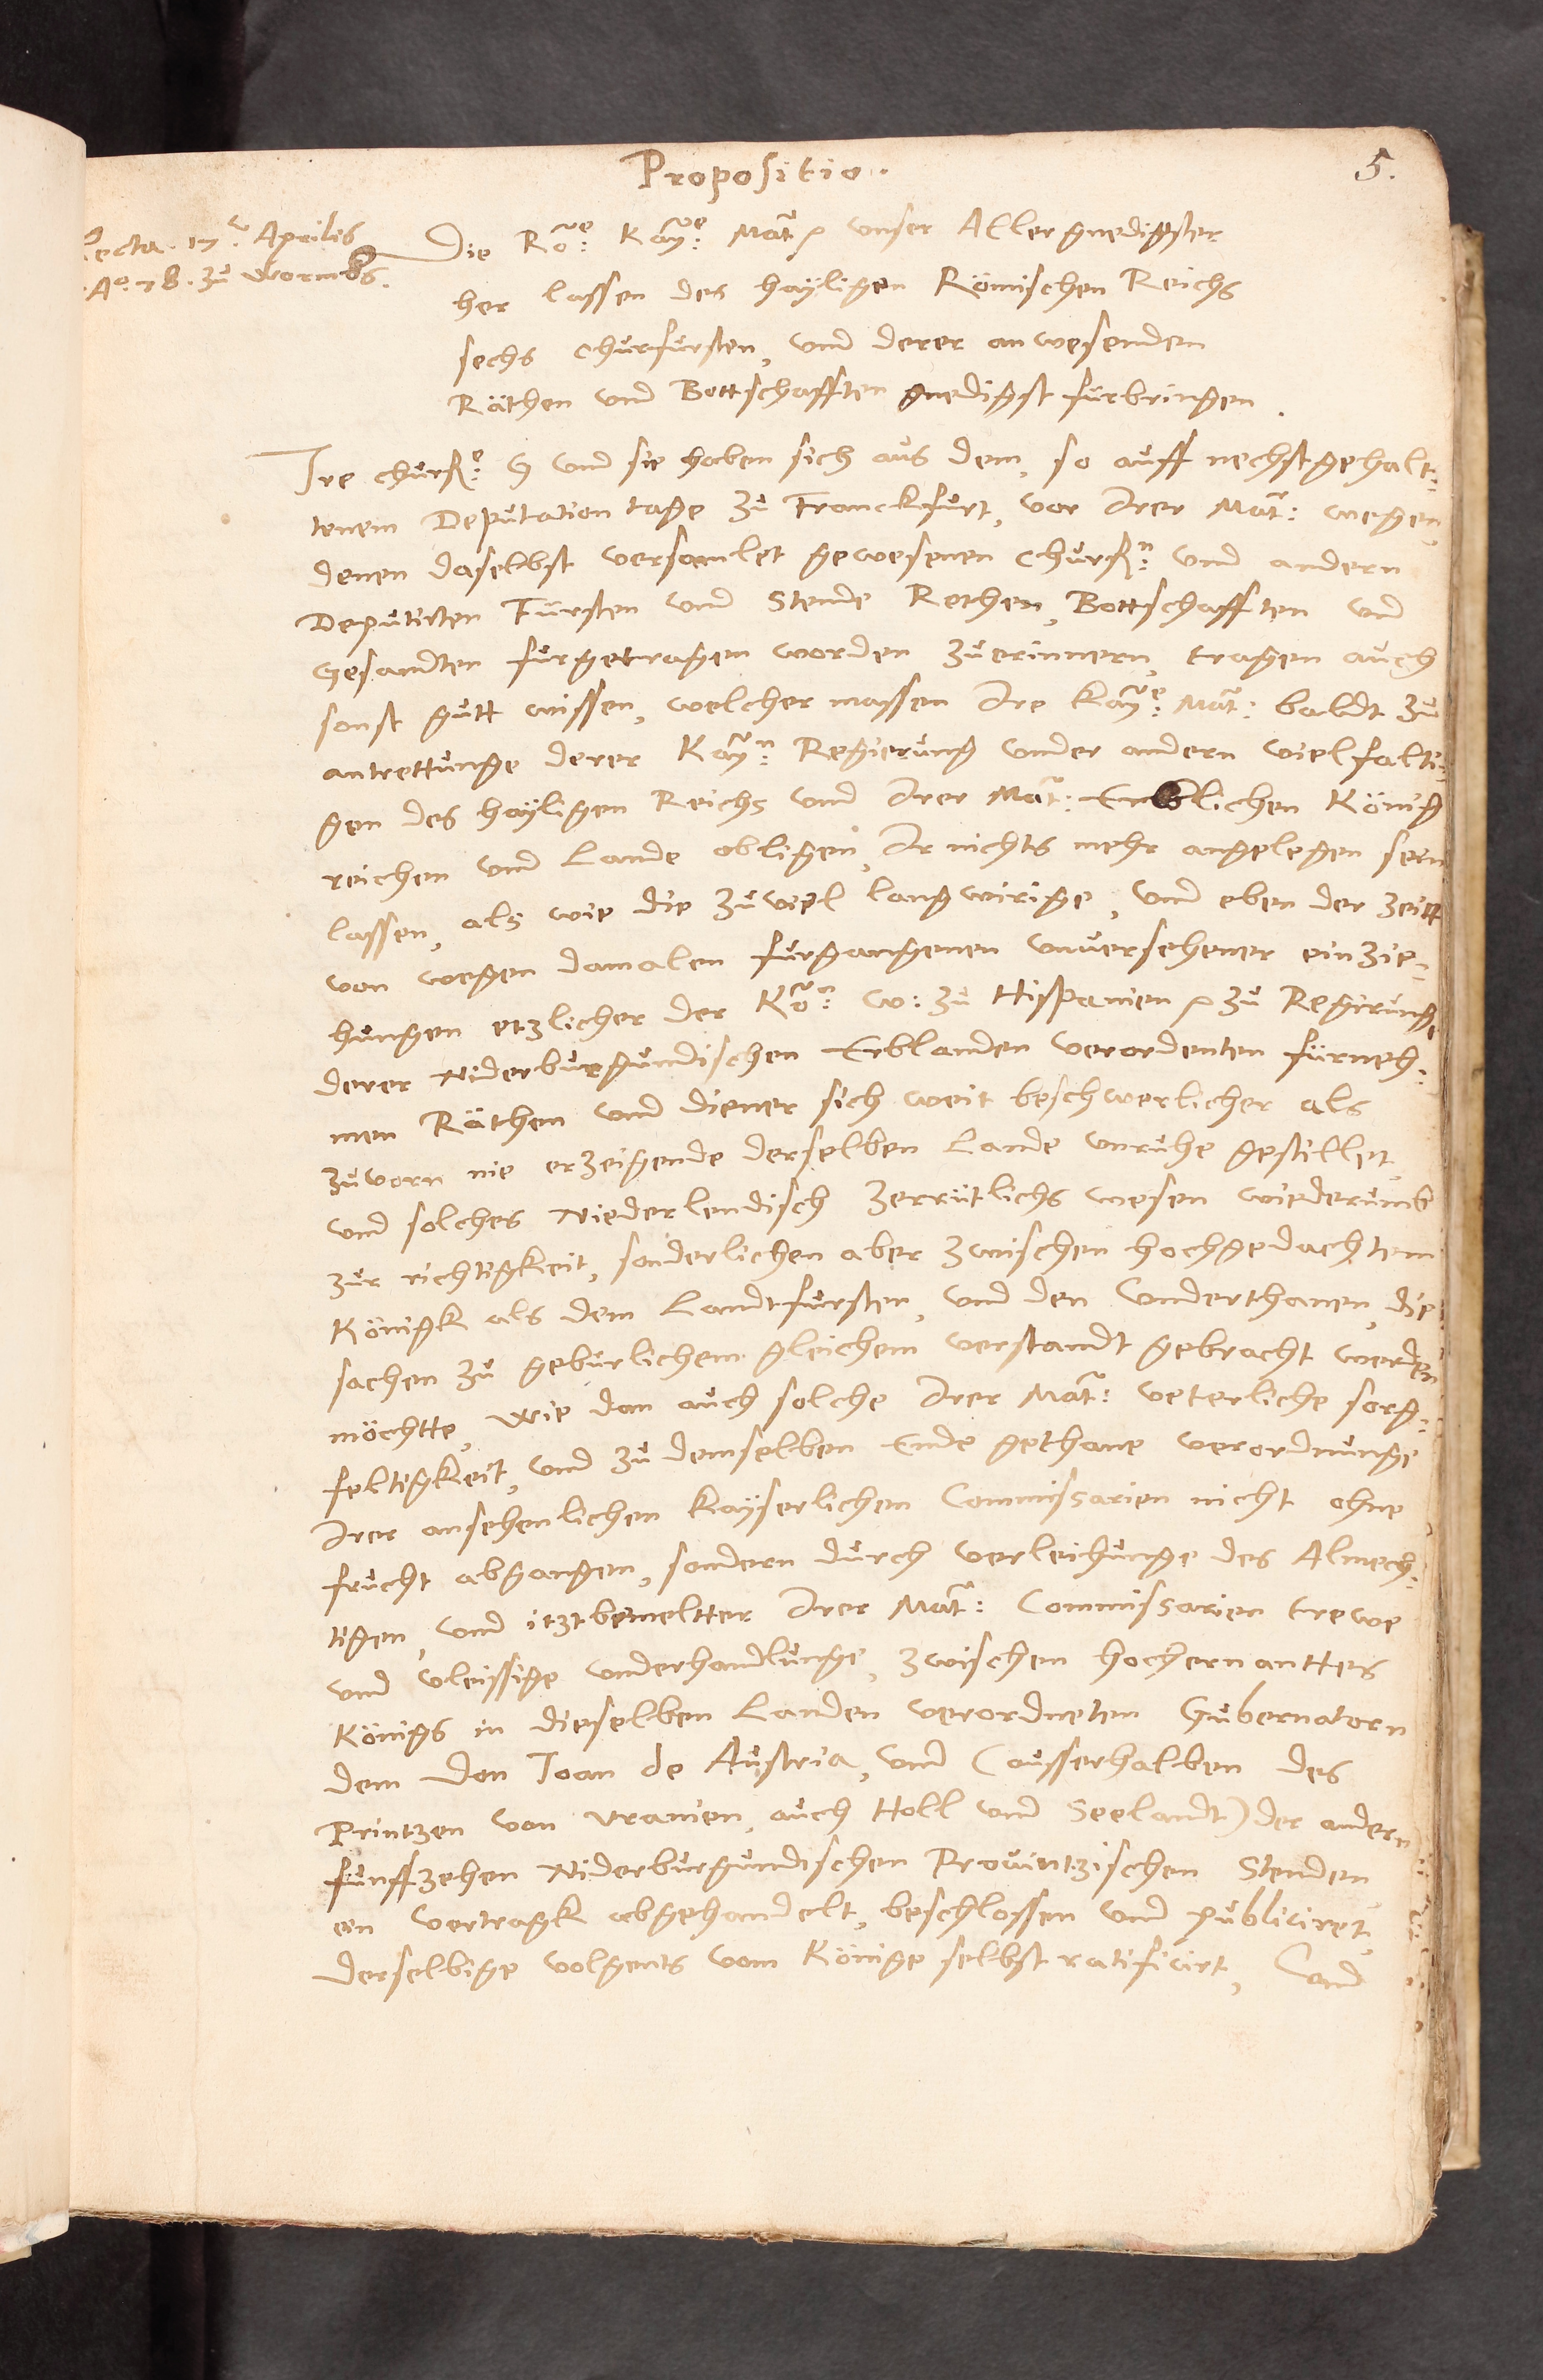 Propositio.
5.
Lecta. 17. Aprilis
A°. 78. zu Wormbs.
Die Röe: Kaye: Mat: unser Allergnedigster
her lassen des hayligen Römischen Reichs
sechs Churfursten, und derer anwesenden
Räthen und Bottschafften gnedigst furbringen.
Ire churf: G und sie haben sich aus dem, so auff nechstgehalt:
tenem Deputation tage zu Franckfurt, vor Irer Mat: wegen,
denen daselbst versamlet gewesenen Churfn: und andern
Deputirten Fürsten und Stende Rethen, Bottschafften und
Gesandten furgetragen worden zuerinnern, tragen auch
sonst gutt wissen, welcher massen Ire Kaye: Mat: baldt zu
antrettunge derer Kayn: Regierung under andern vielfalti:
gen des hayligen Reichs und Irer Mat: Erblichen König
reichen und Lande obligen, Ir nichts mehr angelegen sein
lassen, als wie die zuviel langwirige, und eben der zeitt
von wegen damalen furgangenen unversehener einzie:
hungen etzlicher der Kön: W: zu Hispanien zu Regirunge
derer Niderburgundischen Erblanden verordenten fürneh:
men Räthen und diener sich weit beschwerlicher als
zuvorn nie erzeigende derselben Lande unruhe gestillet,
und solches Niederlendisch zerrütlichs wesen wiederumb
zur richtigkeit, sonderlichen aber zwischen hochgedachtem
Königk als dem Landtfursten, und den Underthanen, die
sachen zu geburlichem gleichem verstandt gebracht werden
möchtte, Wie dan auch solche Irer Mat: veterliche sorg:
feltigkeit, und zu demselben Ende gethane verordnunge
Irer ansehenlichen Kayserlichen Commissarien nicht ohne
frucht abgangen, sondern durch verleihunge des Almech:
tigen, und itztbemeltter Irer Mat: Commissarien trewe
und vleissige underhandlunge, zwischen hochernanttes
Königs in dieselben Landen verordneten Gubernatorn
dem Don Joan de Austria, und (ausserhalben des
Printzen von Uranien, auch Holl und Seelandt) der andern
funffzehen Niderburgundischen Provintzischen Stenden
ein Vertragk abgehandelt, beschlossen und publiciret,
derselbige volgents vom Könige selbst ratificirt, Und